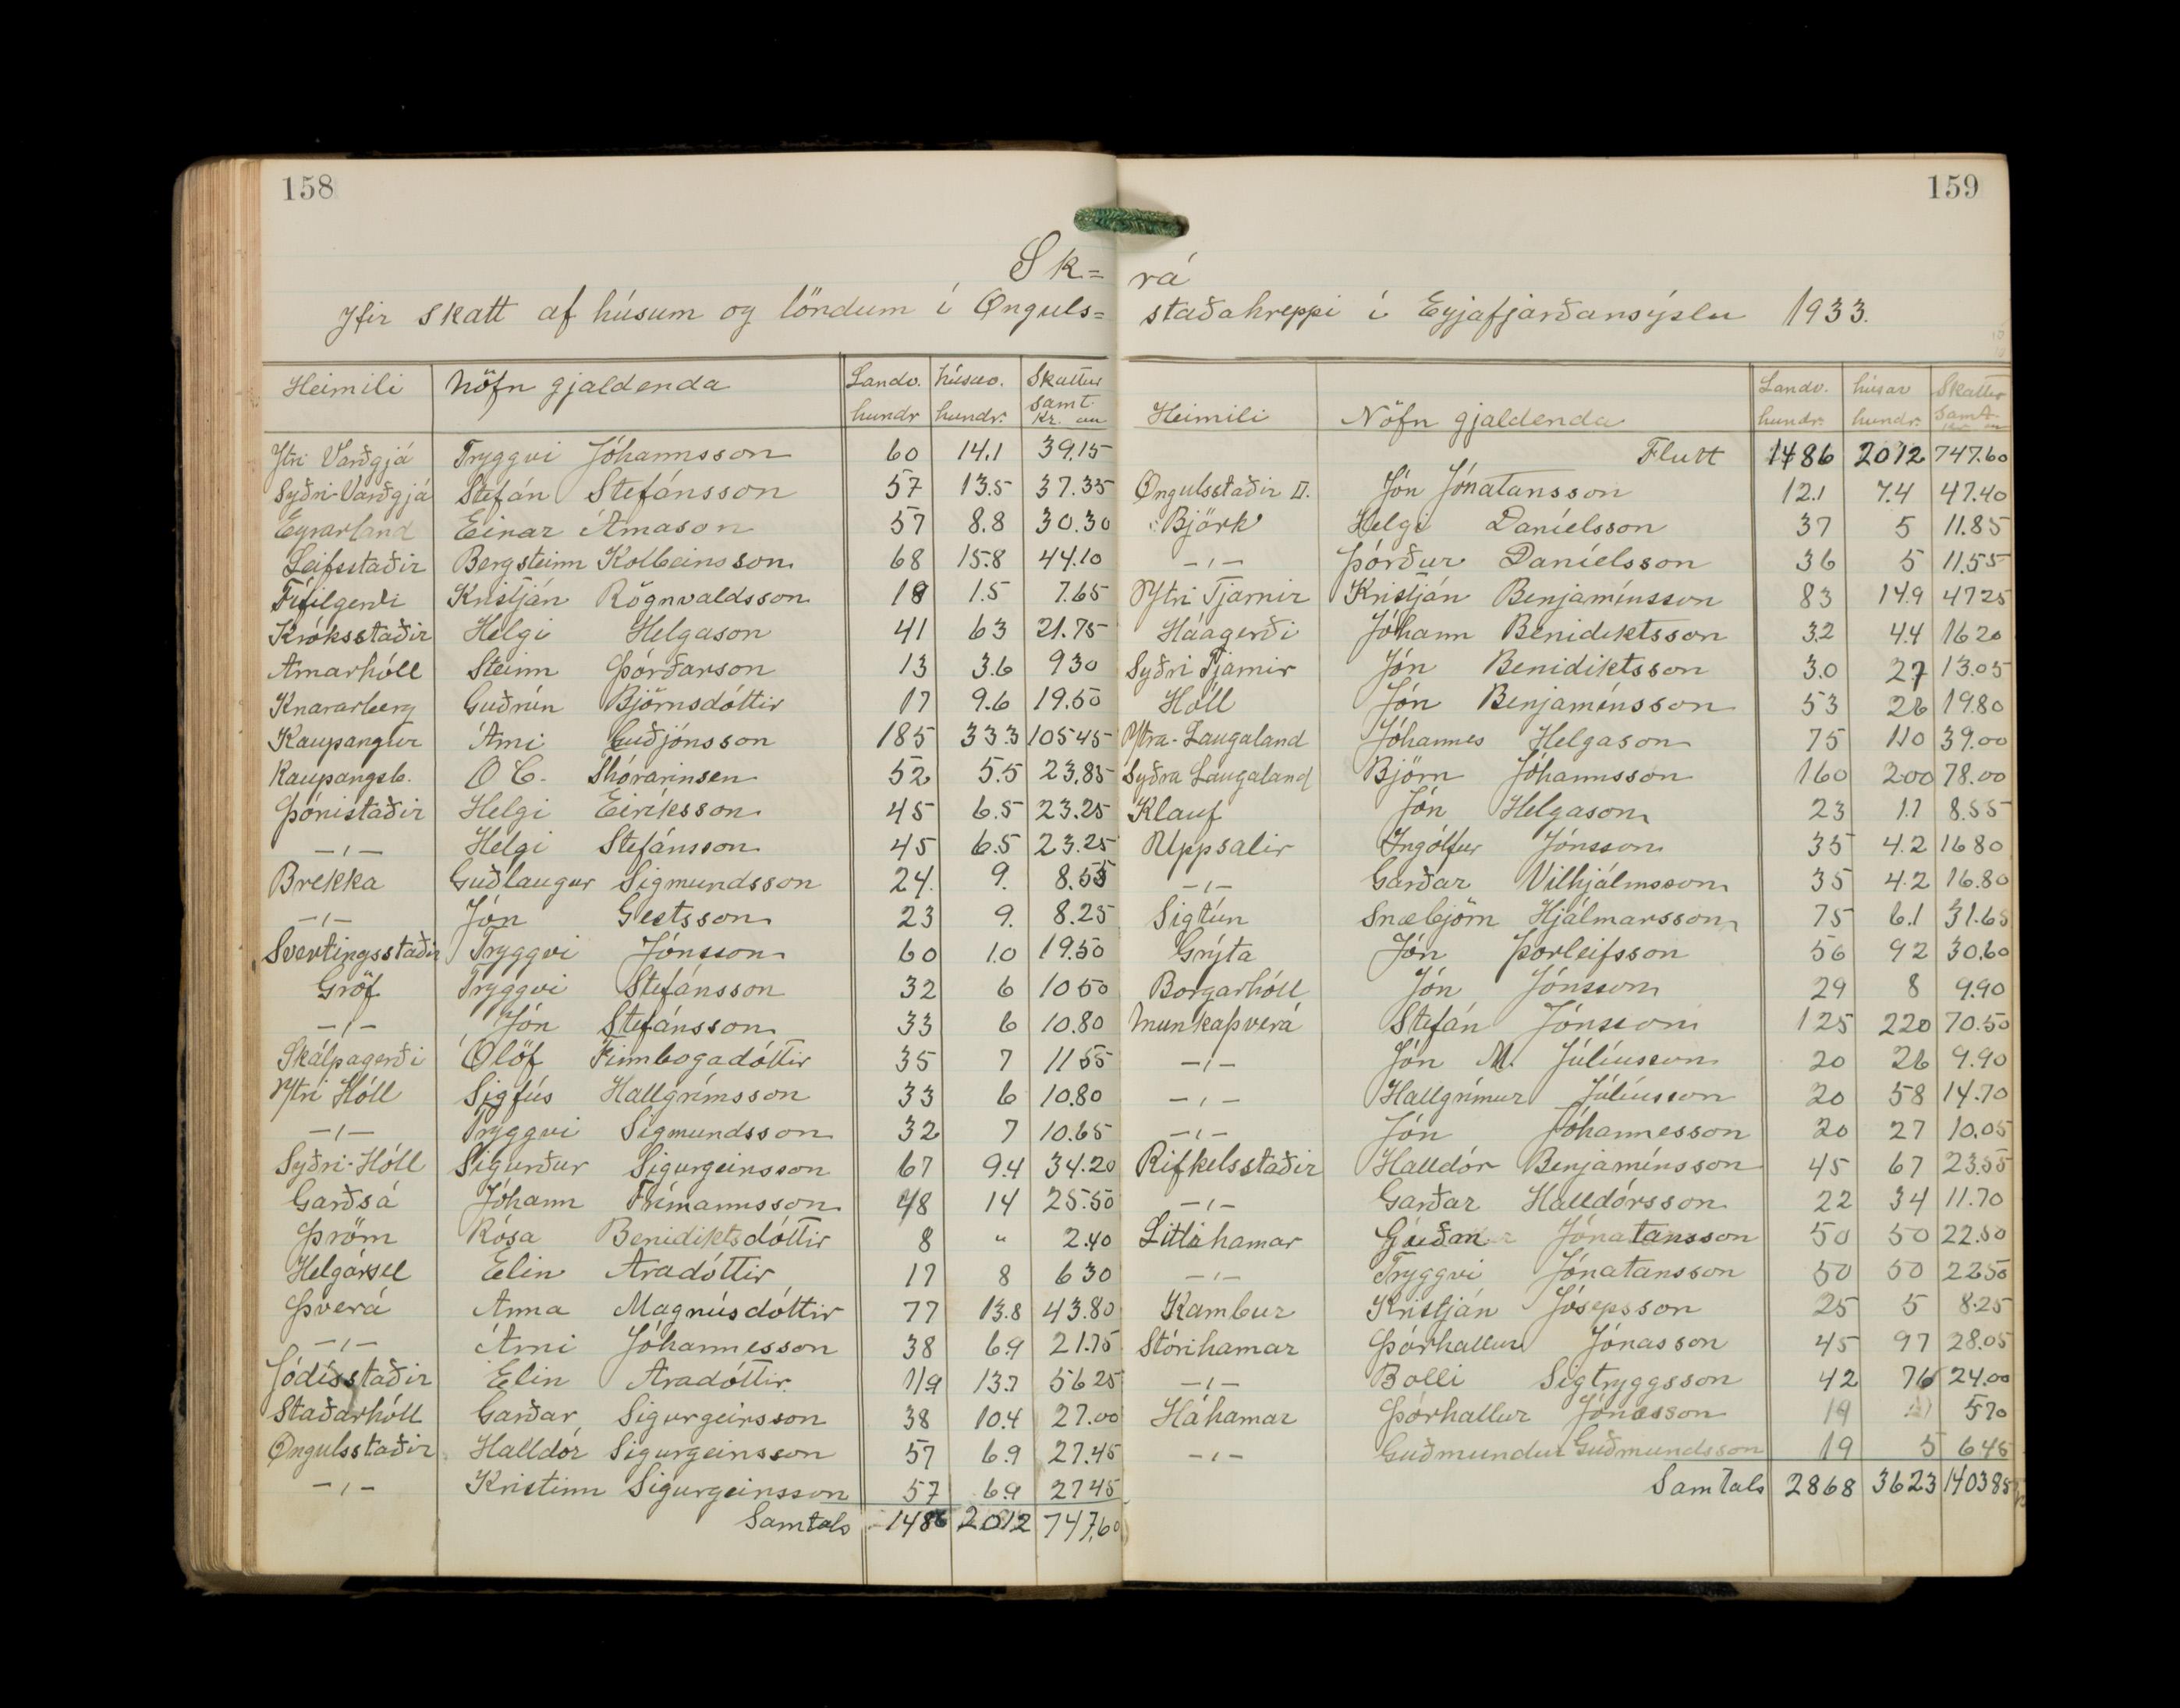 158
Sk=
Yfir skatt af húsum og löndum í Onguls=
Heimili Nöfn gjaldenda Landv. hundr húsav. hundr. Skattur samt. Kr. au
Ytri Varðgjá Tryggvi Jóhannsson 60 14.1 39.15
Syðri-Varðgjá Stefán Stefánsson 57 13.5 37.35
Eyrarland Einar Árnason 57 8.8 30.30
Leifsstaðir Bergsteinn Kolbeinsson 68 15.8 44.10
Fífilgerði Kristján Rögnvaldsson 18 1.5 7.65
Króksstaðir Helgi Helgason 41 63 21.75
Arnarhóll Steinn Þórðarson 13 3.6 930
Knararberg Guðrún Björnsdóttir 17 9.6 19.50
Kaupangur Árni Guðjónsson 185 33.3 10545
Kaupangsb. O C. Thórarinsen 52 5.5 23.85
Þórustaðir Helgi Eiríksson 45 6.5 23.25
—,— Helgi Stefánsson 45 6.5 23.25
Brekka Guðlaugur Sigmundsson 24. 9. 8.55
—,— Jón Gestsson 23 9. 8.25
Svertingsstaðir Tryggvi Jónsson 60 1.0 19.50
Gröf Tryggvi Stefánsson 32 6 1050
—,— Jón Stefánsson 33 6 10.80
Skálpagerði Ólöf Finnbogadóttir 35 7 1155
Ytri Hóll Sigfús Hallgrímsson 33 6 10.80
—,— Tryggvi Sigmundsson 32 7 10.65
Syðri-Hóll Sigurður Sigurgeirsson 67 9.4 34.20
Garðsá Jóhann Frímannsson 48 14 25.50
Þröm Rósa Benidiktsdóttir 8 " 2.40
Helgársel Elin Aradóttir 17 8 630
Þverá Anna Magnúsdóttir 77 13.8 43.80
—,— Árni Jóhannesson 38 6.9 21.75
Jódísstaðir Elin Aradóttir 119 13.7 5625
Staðarhóll Garðar Sigurgeirsson 38 10.4 27.00
Ongulsstaðir Halldór Sigurgeirsson 57 6.9 27.45
—,— Kristinn Sigurgeirsson 57 6.9 2745
Samtals 1486 2012 747,60
159
rá
staðahreppi í Eyjafjarðarsýslu 1933.
Heimili Nöfn gjaldenda Landv. hundr. húsav hundr. Skattur samt.
Flutt 1486 2012 747.60
Ongulsstaðir II. Jón Jónatansson 12.1 7.4 47.40
Björk Helgi Daníelsson 37 5 11.85
—,— Þórður Daníelsson 36 5 11.55
Ytri Tjarnir Kristján Benjamínsson 83 14.9 4725
Háagerði Jóhann Benidiktsson 3.2 4.4 1620
Syðri Tjarnir Jón Benidiktsson 3.0 2.7 13.05
Hóll Jón Benjamínsson 53 26 19.80
Ytra-Laugaland Jóhannes Helgason 75 110 39.00
Syðra Laugaland Björn Jóhannsson 160 200 78.00
Klauf Jón Helgason 23 1.1 8.55
Uppsalir Ingólfur Jónsson 35 4.2 1680
—,— Garðar Vilhjálmsson 35 4.2 16.80
Sigtún Snæbjörn Hjálmarsson 75 6.1 31.65
Grýta Jón Þorleifsson 56 92 30.60
Borgarhóll Jón Jónsson 29 8 9.90
Munkaþverá Stefán Jónsson 125 220 70.50
—,— Jón M. Júlíusson 20 26 9.90
—,— Hallgrímur Júlíusson 20 58 14.70
—,— Jón Jóhannesson 20 27 10.05
Rifkelsstaðir Halldór Benjamínsson 45 67 23.55
—,— Garðar Halldórsson 22 34 11.70
Litlihamar Jónatansson 50 50 22.50
—,— Tryggvi Jónatansson 50 50 2250
Kambur Kristján Jósepsson 25 5 8.25
Stórihamar Þórhallur Jónasson 45 97 28.05
—,— Bolli Sigtryggsson 42 76 24.00
Háhamar Þórhallur Jónasson 19 570
—,— Guðmundur Guðmundsson 19 5 645
Samtals 2868 3623 140385